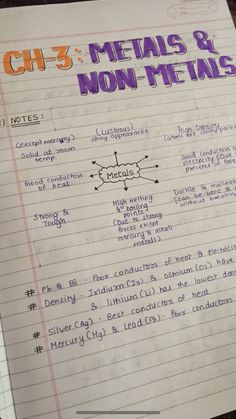 CH-3: METALS &
NON-METALS
NOTES:
(except mercury)
Solid at room
temp
(Lustrous)
Shiny appearance
High Density
Good conductors
of heat
Metals
Good conductors
electricity
presence of
Strong &
Tough
High melting
& boiling
points
(Due to strong
forces except
mercury & alkali
metals)
Ductile & malleable
(can be bent &
without breaking
# Pb & Bi - Poor conductors of heat & electricity
# Density - Iridium (Ir) & osmium (Os) have
& lithium (Li) has the lowest
# Silver (Ag) - Best conductors of heat
# Mercury (Hg) & Lead (Pb) - Poor conductors